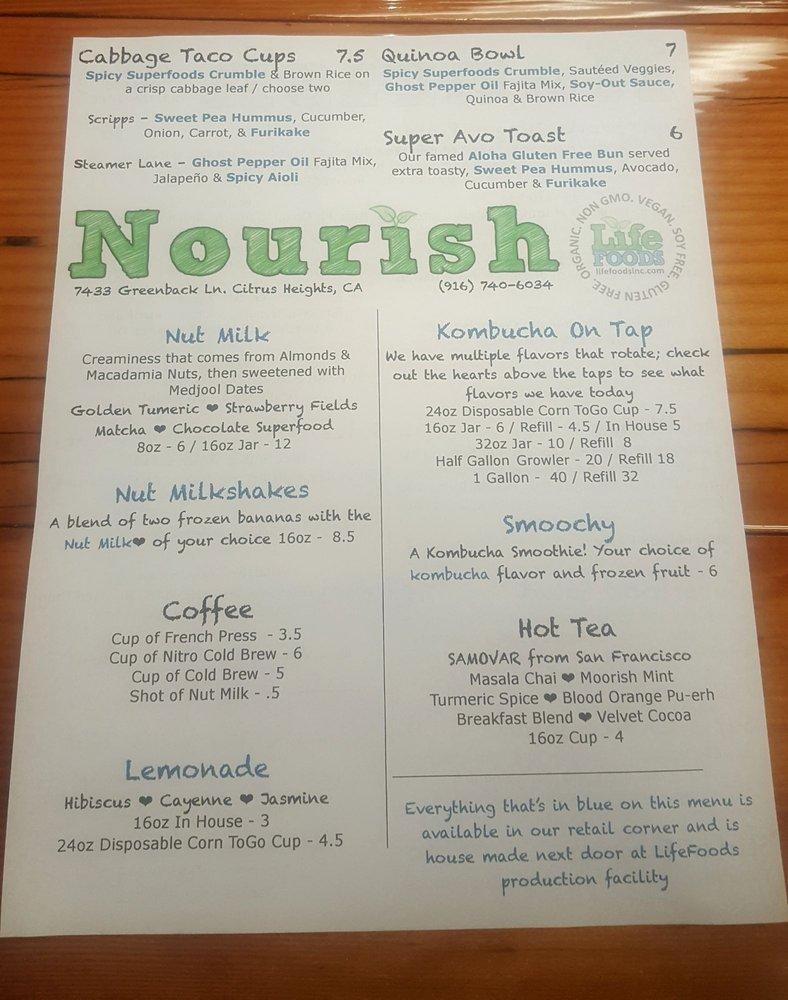 Cabbage Taco Cups 7.5
Spicy Superfoods Crumble & Brown Rice on
a crisp cabbage leaf / choose two
Scripps - Sweet Pea Hummus, Cucumber,
Onion, Carrot, & Furikake
Steamer Lane - Ghost Pepper Oil Fajita Mix,
Jalapeño & Spicy Aioli
Quinoa Bowl 7
Spicy Superfoods Crumble, Sautéed Veggies,
Ghost Pepper Oil Fajita Mix, Soy-Out Sauce,
Quinoa & Brown Rice
Super Avo Toast 6
Our famed Aloha Gluten Free Bun served
extra toasty, Sweet Pea Hummus, Avocado,
Cucumber & Furikake
Nourish
7433 Greenback Ln. Citrus Heights, CA (916) 740-6034
ORGANIC. NON GMO. VEGAN. SOY FREE. GLUTEN FREE.
Life
FOODS
lifefoodsinc.com
Nut Milk
Creaminess that comes from Almonds &
Macadamia Nuts, then sweetened with
Medjool Dates
Golden Tumeric ❤ Strawberry Fields
Matcha ❤ Chocolate Superfood
8oz - 6 / 16oz Jar - 12
Nut Milkshakes
A blend of two frozen bananas with the
Nut Milk❤ of your choice 16oz - 8.5
Coffee
Cup of French Press - 3.5
Cup of Nitro Cold Brew - 6
Cup of Cold Brew - 5
Shot of Nut Milk - .5
Lemonade
Hibiscus ❤ Cayenne ❤ Jasmine
16oz In House - 3
24oz Disposable Corn ToGo Cup - 4.5
Kombucha On Tap
We have multiple flavors that rotate; check
out the hearts above the taps to see what
flavors we have today
24oz Disposable Corn ToGo Cup - 7.5
16oz Jar - 6 / Refill - 4.5 / In House 5
32oz Jar - 10 / Refill 8
Half Gallon Growler - 20 / Refill 18
1 Gallon - 40 / Refill 32
Smoochy
A Kombucha Smoothie! Your choice of
kombucha flavor and frozen fruit - 6
Hot Tea
SAMOVAR from San Francisco
Masala Chai ❤ Moorish Mint
Turmeric Spice ❤ Blood Orange Pu-erh
Breakfast Blend ❤ Velvet Cocoa
16oz Cup - 4
Everything that's in blue on this menu is
available in our retail corner and is
house made next door at LifeFoods
production facility